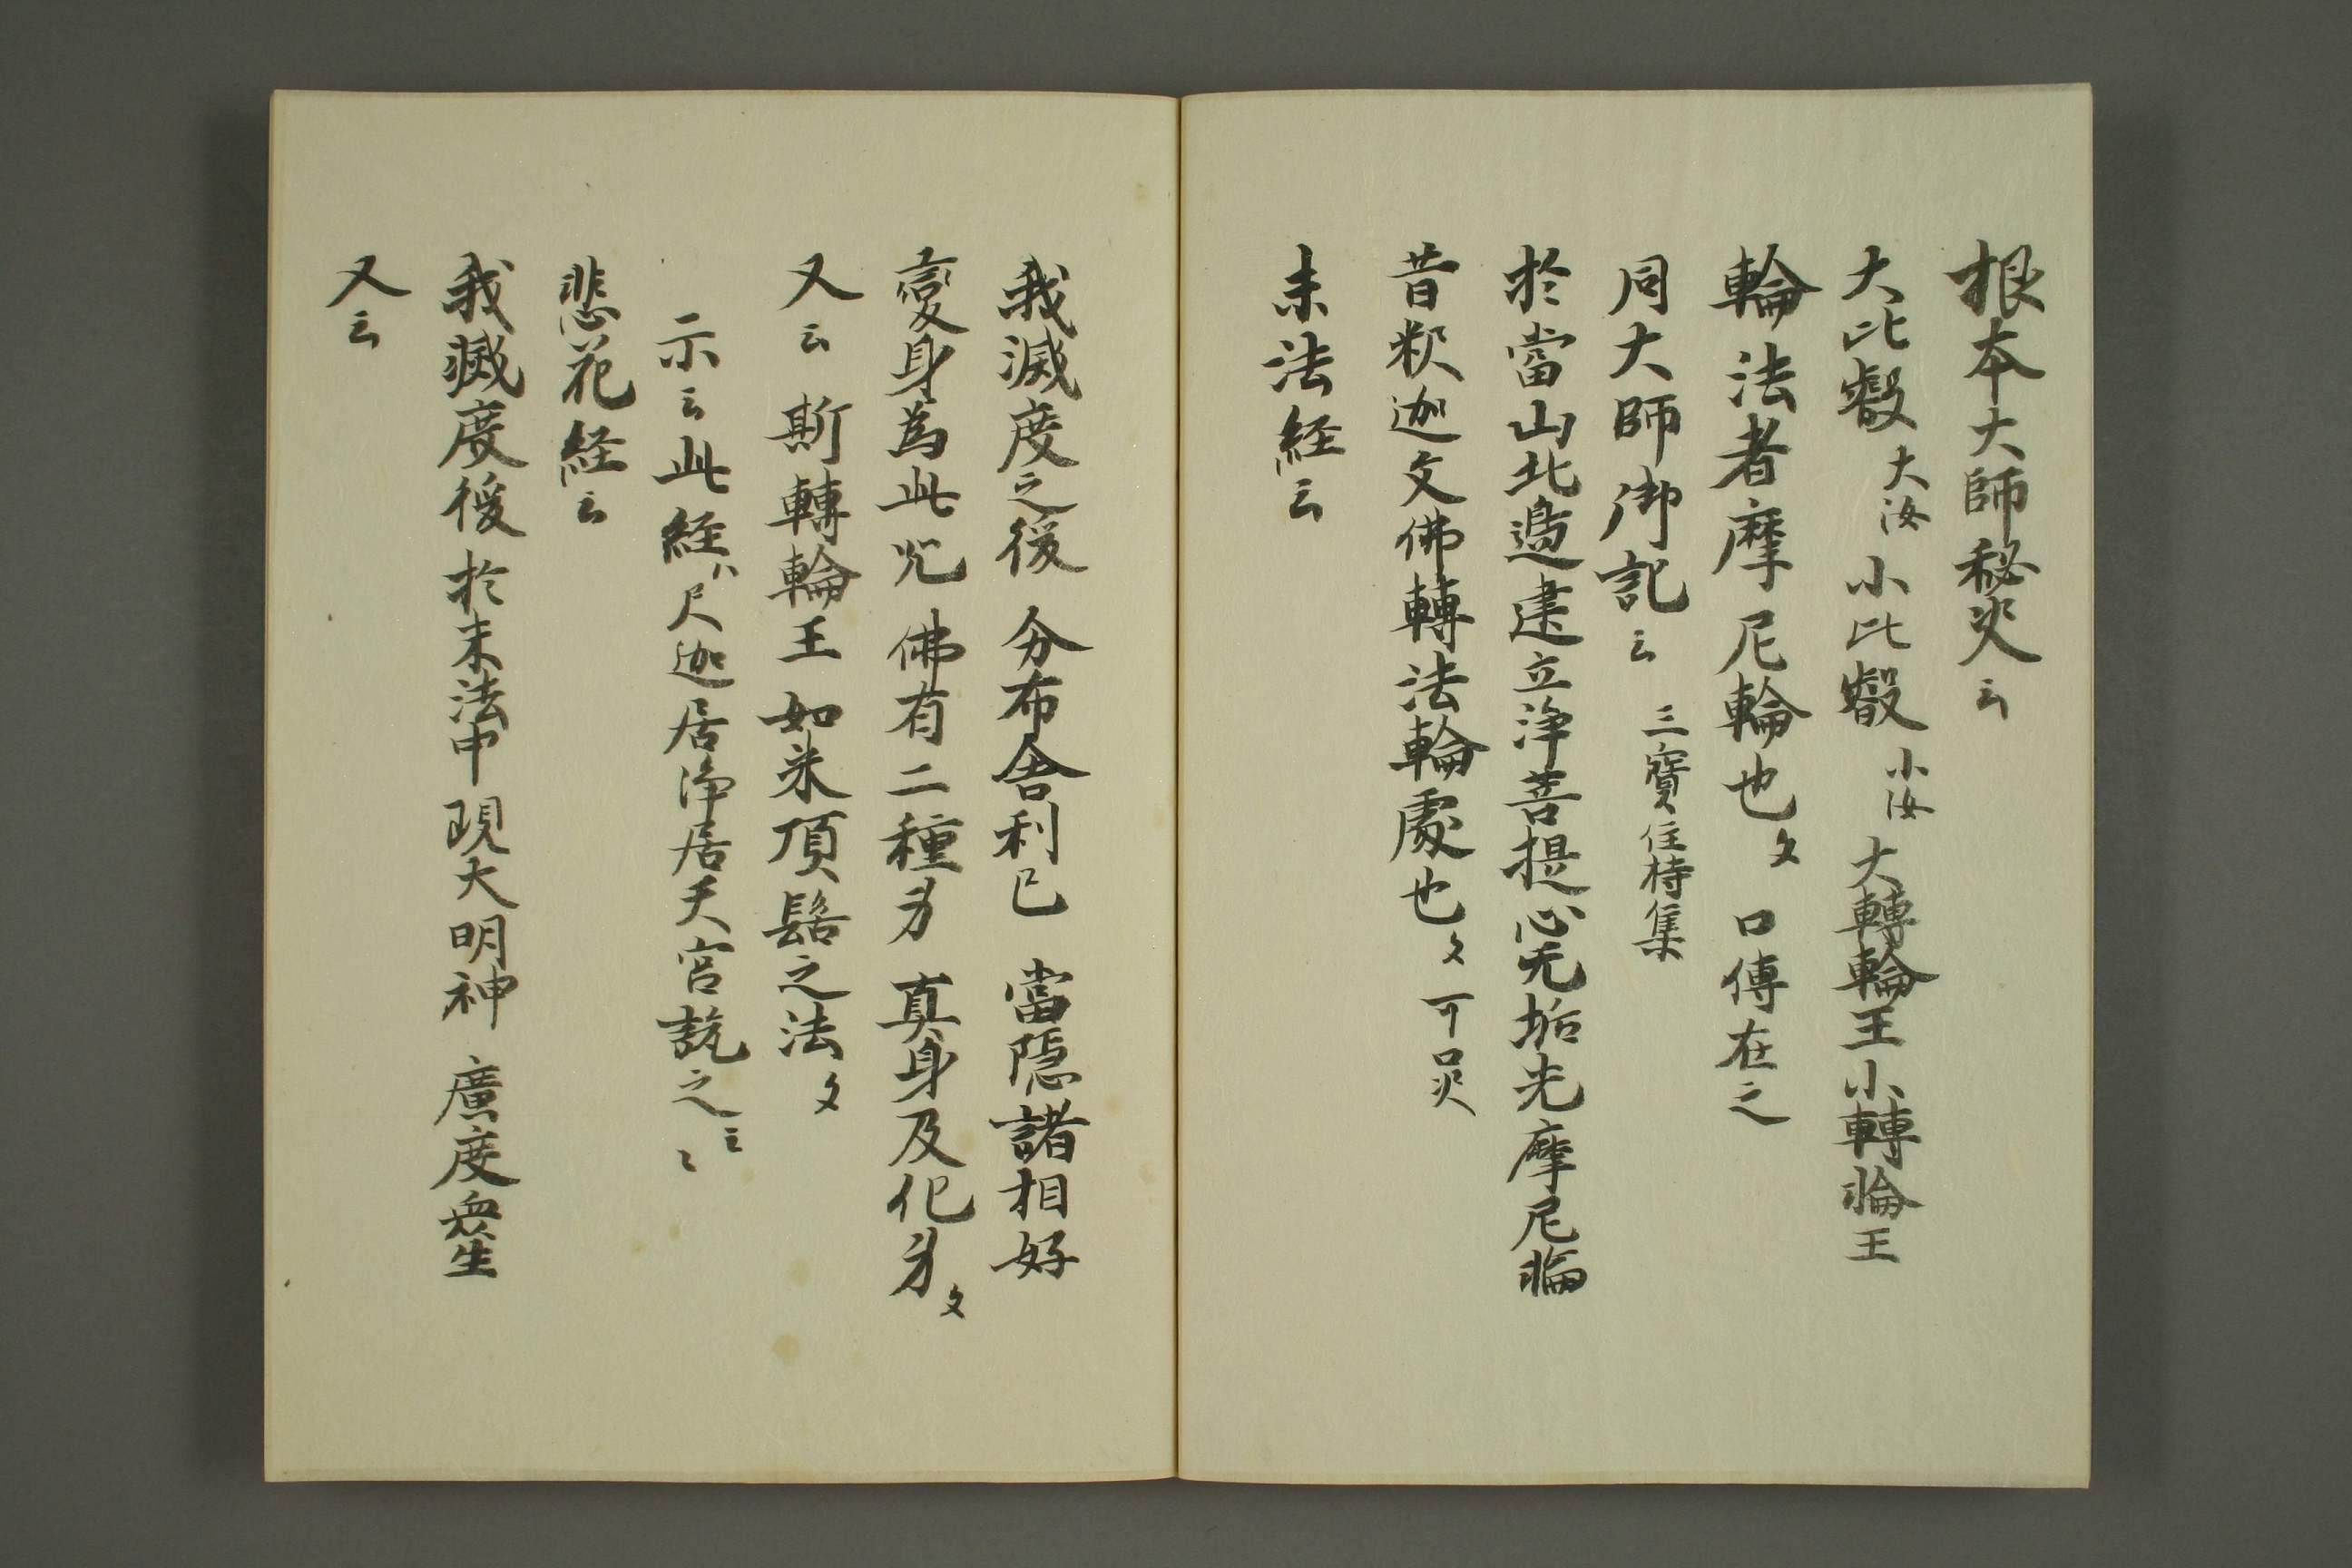 根本大師秘决云
大比叡大汝小比叡小汝大轉輪王小轉輪王
輪法者摩尼輪也文口傳在之
同大師御記云三寶住持集
於當山北邊建立淨菩提心无垢光摩尼輪
昔釈迦文佛轉法輪處也文可見
末法経云
我滅度之後分布舎利已當隠諸相好
變身為此咒佛有二種身真身及化身文
又云斯轉輪王如来頂髻之法文
示云此経ハ尺迦居浄居天宮説之云々
悲花経云
我滅度後於末法中現大明神廣度衆生
又云